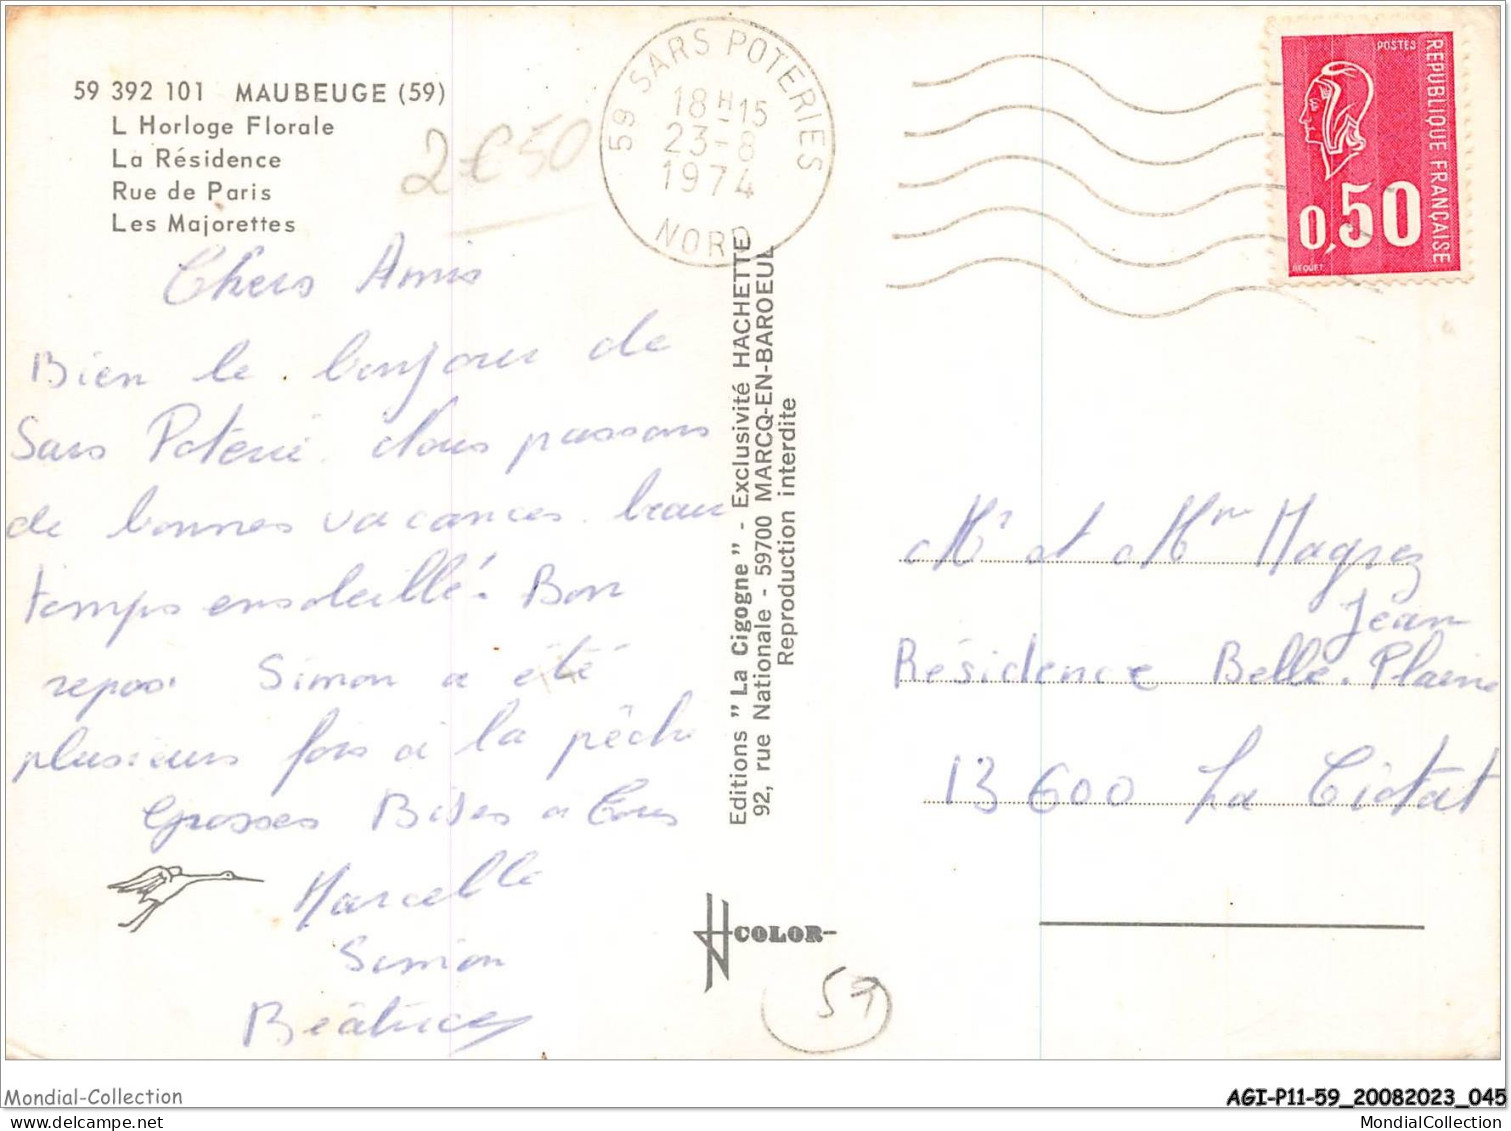 59 392 101 MAUBEUGE (59)
L Horloge Florale
La Résidence
Rue de Paris
Les Majorettes
2€50
59 SARS POTERIES
18H-15
23-8
1974
NORD
POSTES
REPUBLIQUE FRANÇAISE
0,50
BEQUET
Chers Amis
Bien le bonjour de
Sars Poterie. Nous passons
de bonnes vacances. beau
temps ensoleillé. Bon
repos. Simon a été
plusieurs fois à la pêche
Grosses Bises à Tous
Marcelle
Simon
Béatrice
Editions "La Cigogne" - Exclusivité HACHETTE
92, rue Nationale - 59700 MARCQ-EN-BAROEUL
Reproduction interdite
COLOR
59
Mr et Mme Magrez
Jean
Résidence Belle. Plaine
13600 La Ciotat
Mondial-Collection
AGI-P11-59_20082023_045
www.delcampe.net
MondialCollection